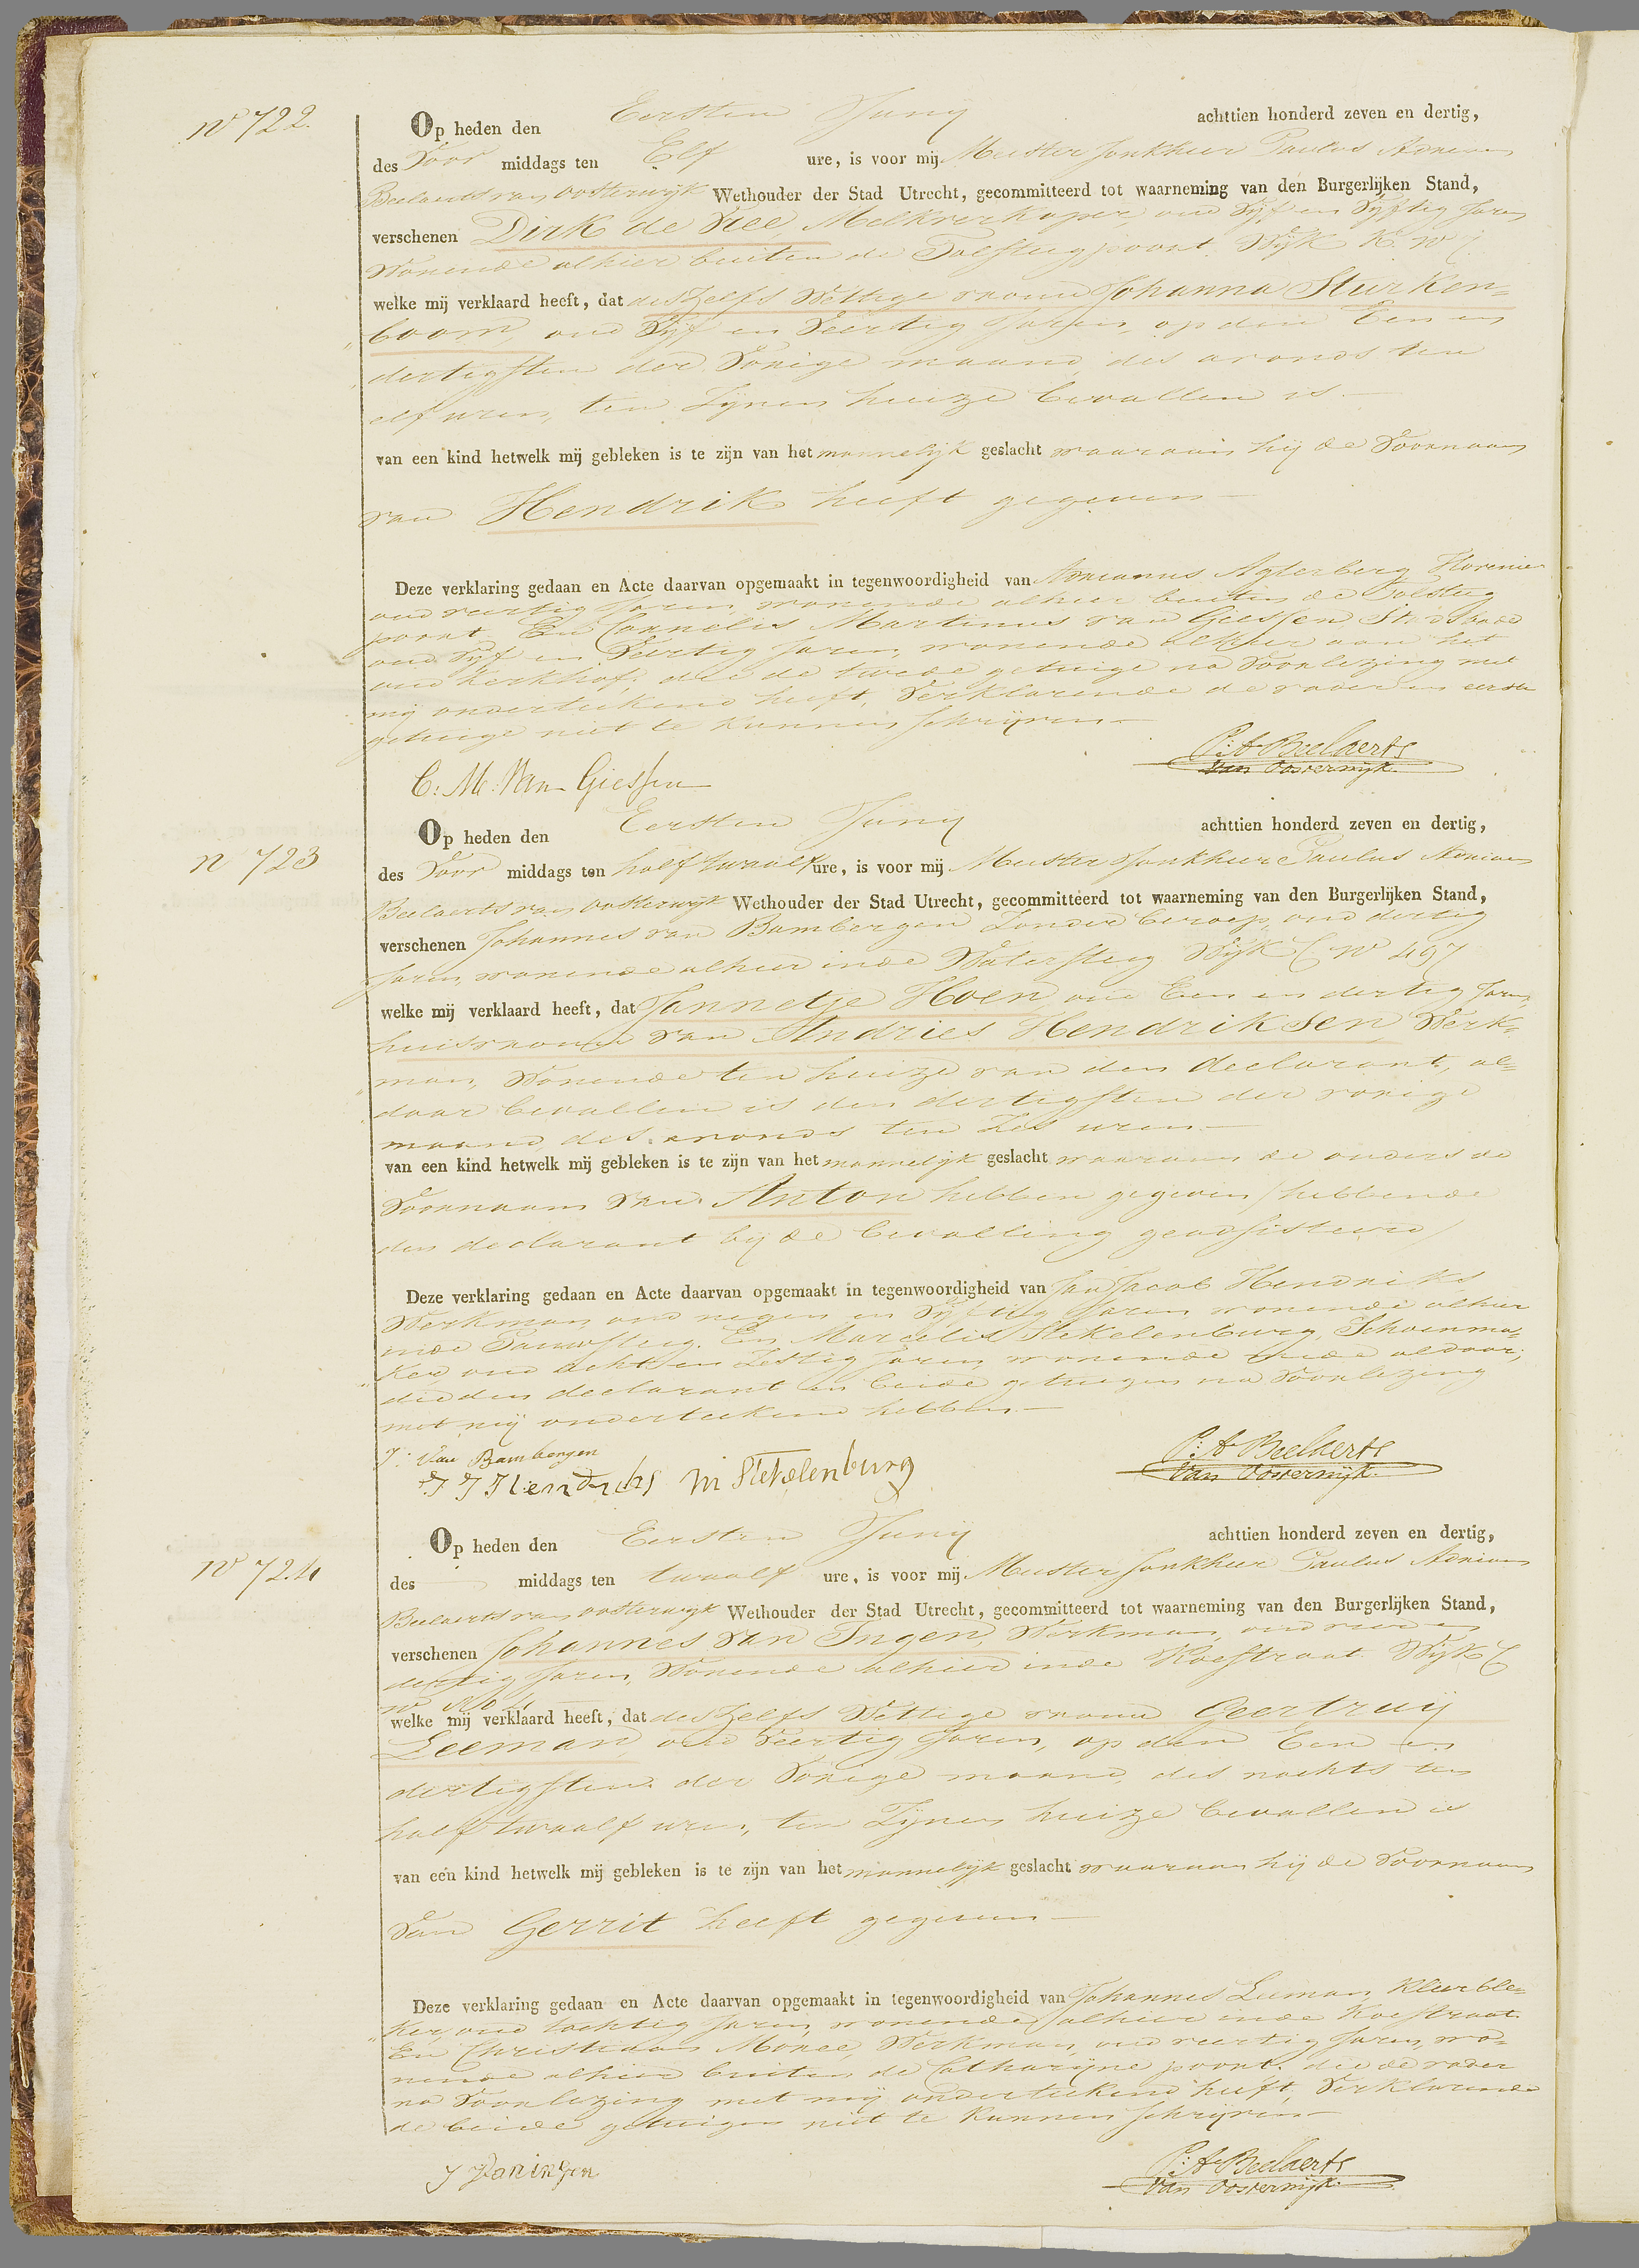 No 722.
Op heden den Eersten Juny achttien honderd zeven en dertig,
des Voor middags ten Elf ure, is voor mij Meester Jonkheer Paulus Adriaan
Beelaerts van Oosterwijk Wethouder der Stad Utrecht, gecommitteerd tot waarneming van den Burgerlijken Stand,
verschenen Dirk de Ree, Melkverkoper, oud Vyf en Vyftig Jaren
Wonende alhier buiten de Tolsteegpoort Wijk K. No
welke mij verklaard heeft, dat deszelfs Wettige vrouw Johanna Sturken=
boom, oud Vyf en Veertig Jaren, op den Een en
dertigsten der Vorige maand, des avonds ten
elf uren, ten Zynen huize bevallen is
van een kind hetwelk mij gebleken is te zijn van het mannelijk geslacht waaraan hij de Voornaam
van Hendrik heeft gegeven
Deze verklaring gedaan en Acte daarvan opgemaakt in tegenwoordigheid van Adrianus Agterberg Hovenier
oud veertig Jaren, wonende alhier buiten de Tolsteeg
poort En Cornelis Martinus van Giessen Stadsbode
oud Vyf en Veertig Jaren, wonende alhier aan het
oud Kerkhof, die de tweede getuige na Voorlezing met
mij onderteekend heeft, Verklarende de vader en eerste
getuige niet te kunnen schrijven
P: A Beelaerts
van Oosterwijk.
C: M: Van Giessen
No 723
Op heden den Eersten Juny achttien honderd zeven en dertig,
des Voor middags ten half twaalf ure, is voor mij Meester Jonkheer Paulus Adriaan
Beelaerts van Oosterwijk Wethouder der Stad Utrecht, gecommitteerd tot waarneming van den Burgerlijken Stand,
verschenen Johannes van Bambergen Zonder beroep, oud dertig
Jaren, wonende alhier inde Watersteeg Wijk C No 497
welke mij verklaard heeft, dat Jannetje Hoen oud Een en dertig Jaren
huisvrouw van Andries Hendriksen, Werk=
man, Wonende ten huize van den declarant, al=
daar bevallen is den dertigsten der vorige
maand, des avonds ten Zes uren
van een kind hetwelk mij gebleken is te zijn van het mannelijk geslacht waaraan de ouders de
Voornaam van Anton hebben gegeven / hebbende
den declarant bij de bevalling geadsisteerd /
Deze verklaring gedaan en Acte daarvan opgemaakt in tegenwoordigheid van Jan Jacob Hendriks
Werkman, oud negen en Vyftig Jaren wonende alhier
inde Pauwsteeg. En Marcelis Stekelenburg, Schoenma=
ker oud acht en Zestig Jaren wonende mede aldaar,
die den declarant en beide getuigen na Voorlezing
met mij onderteekend hebben
J: Van Bambergen
J J Hendriks M Stekelenburg
P: A Beelaerts
van Oosterwijk.
No 724
Op heden den Eersten Juny achttien honderd zeven en dertig,
des middags ten twaalf ure, is voor mij Meester Jonkheer Paulus Adriaan
Beelaerts van Oosterwijk Wethouder der Stad Utrecht, gecommitteerd tot waarneming van den Burgerlijken Stand,
verschenen Johannes van Ingen, Werkman, oud vier en
dertig Jaren, Wonende alhier inde Koestraat Wijk C
No
welke mij verklaard heeft, dat deszelfs Wettige vrouw Geertruij
Leeman, oud Veertig Jaren, op den Een en
dertigsten der Vorige maand, des nachts ten
half twaalf uren, ten Zynen huize bevallen is
van een kind hetwelk mij gebleken is te zijn van het mannelijk geslacht waaraan hij de Voornaam
Van Gerrit heeft gegeven
Deze verklaring gedaan en Acte daarvan opgemaakt in tegenwoordigheid van Johannes Leman, Kleerble=
ker, oud tachtig Jaren, wonende alhier inde Koestraat
En Christiaan Moree, Werkman, oud veertig Jaren, wo=
nende alhier buiten de Catharijne poort. die de vader
na Voorlezing met mij onderteekend heeft, Verklarende
de beide getuigen niet te kunnen schrijven
J vaningen
P: A Beelaerts
van Oosterwijk.